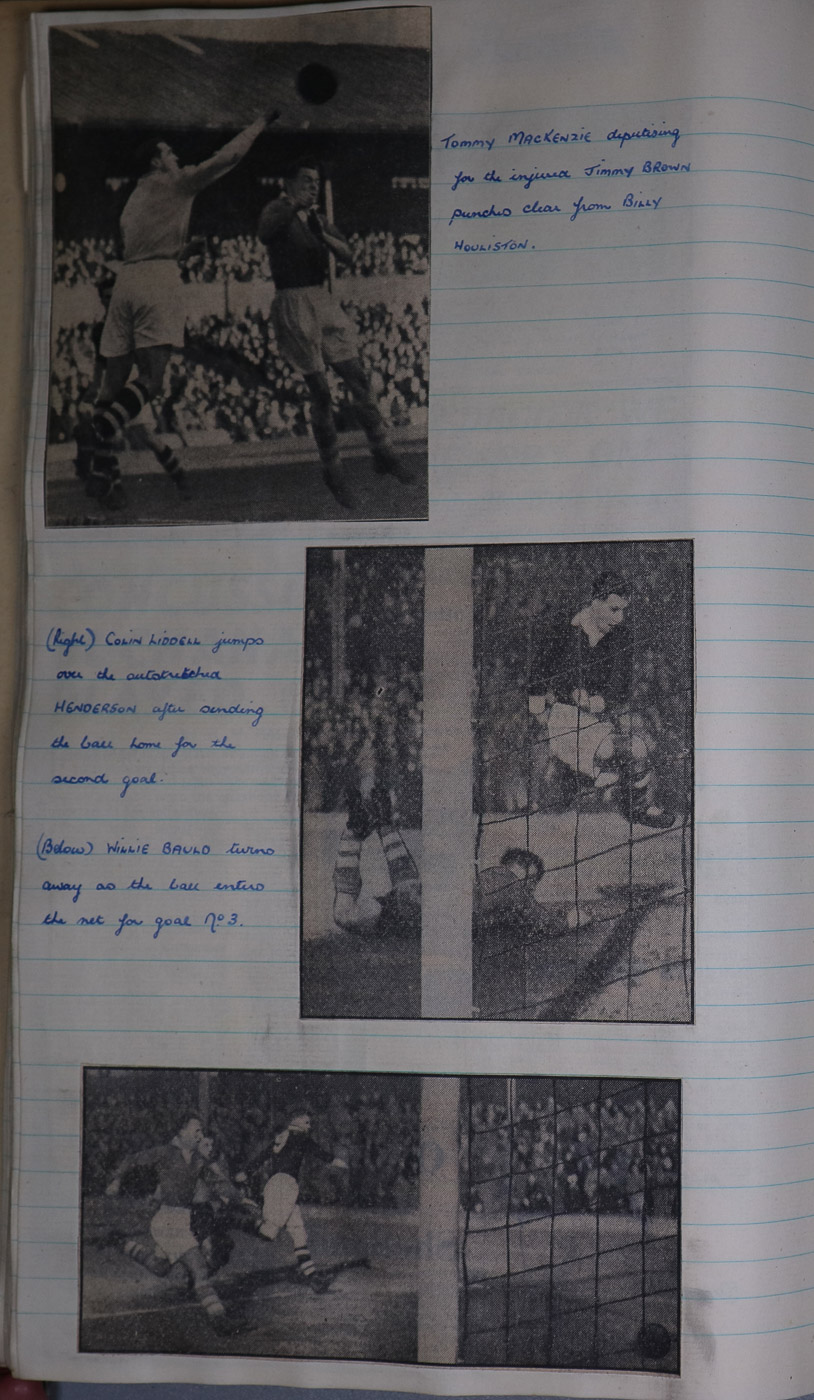 Tommy MACKENZIE deputising
for the injured Jimmy BROWN
punches clear from BILLY
HOULISTON.
(Right) COLIN LIDDELL jumps
over the outstretched
HENDERSON after sending
the ball home for the
second goal.
(Below) WILLIE BAULD turns
away as the ball enters
the net for goal No 3.